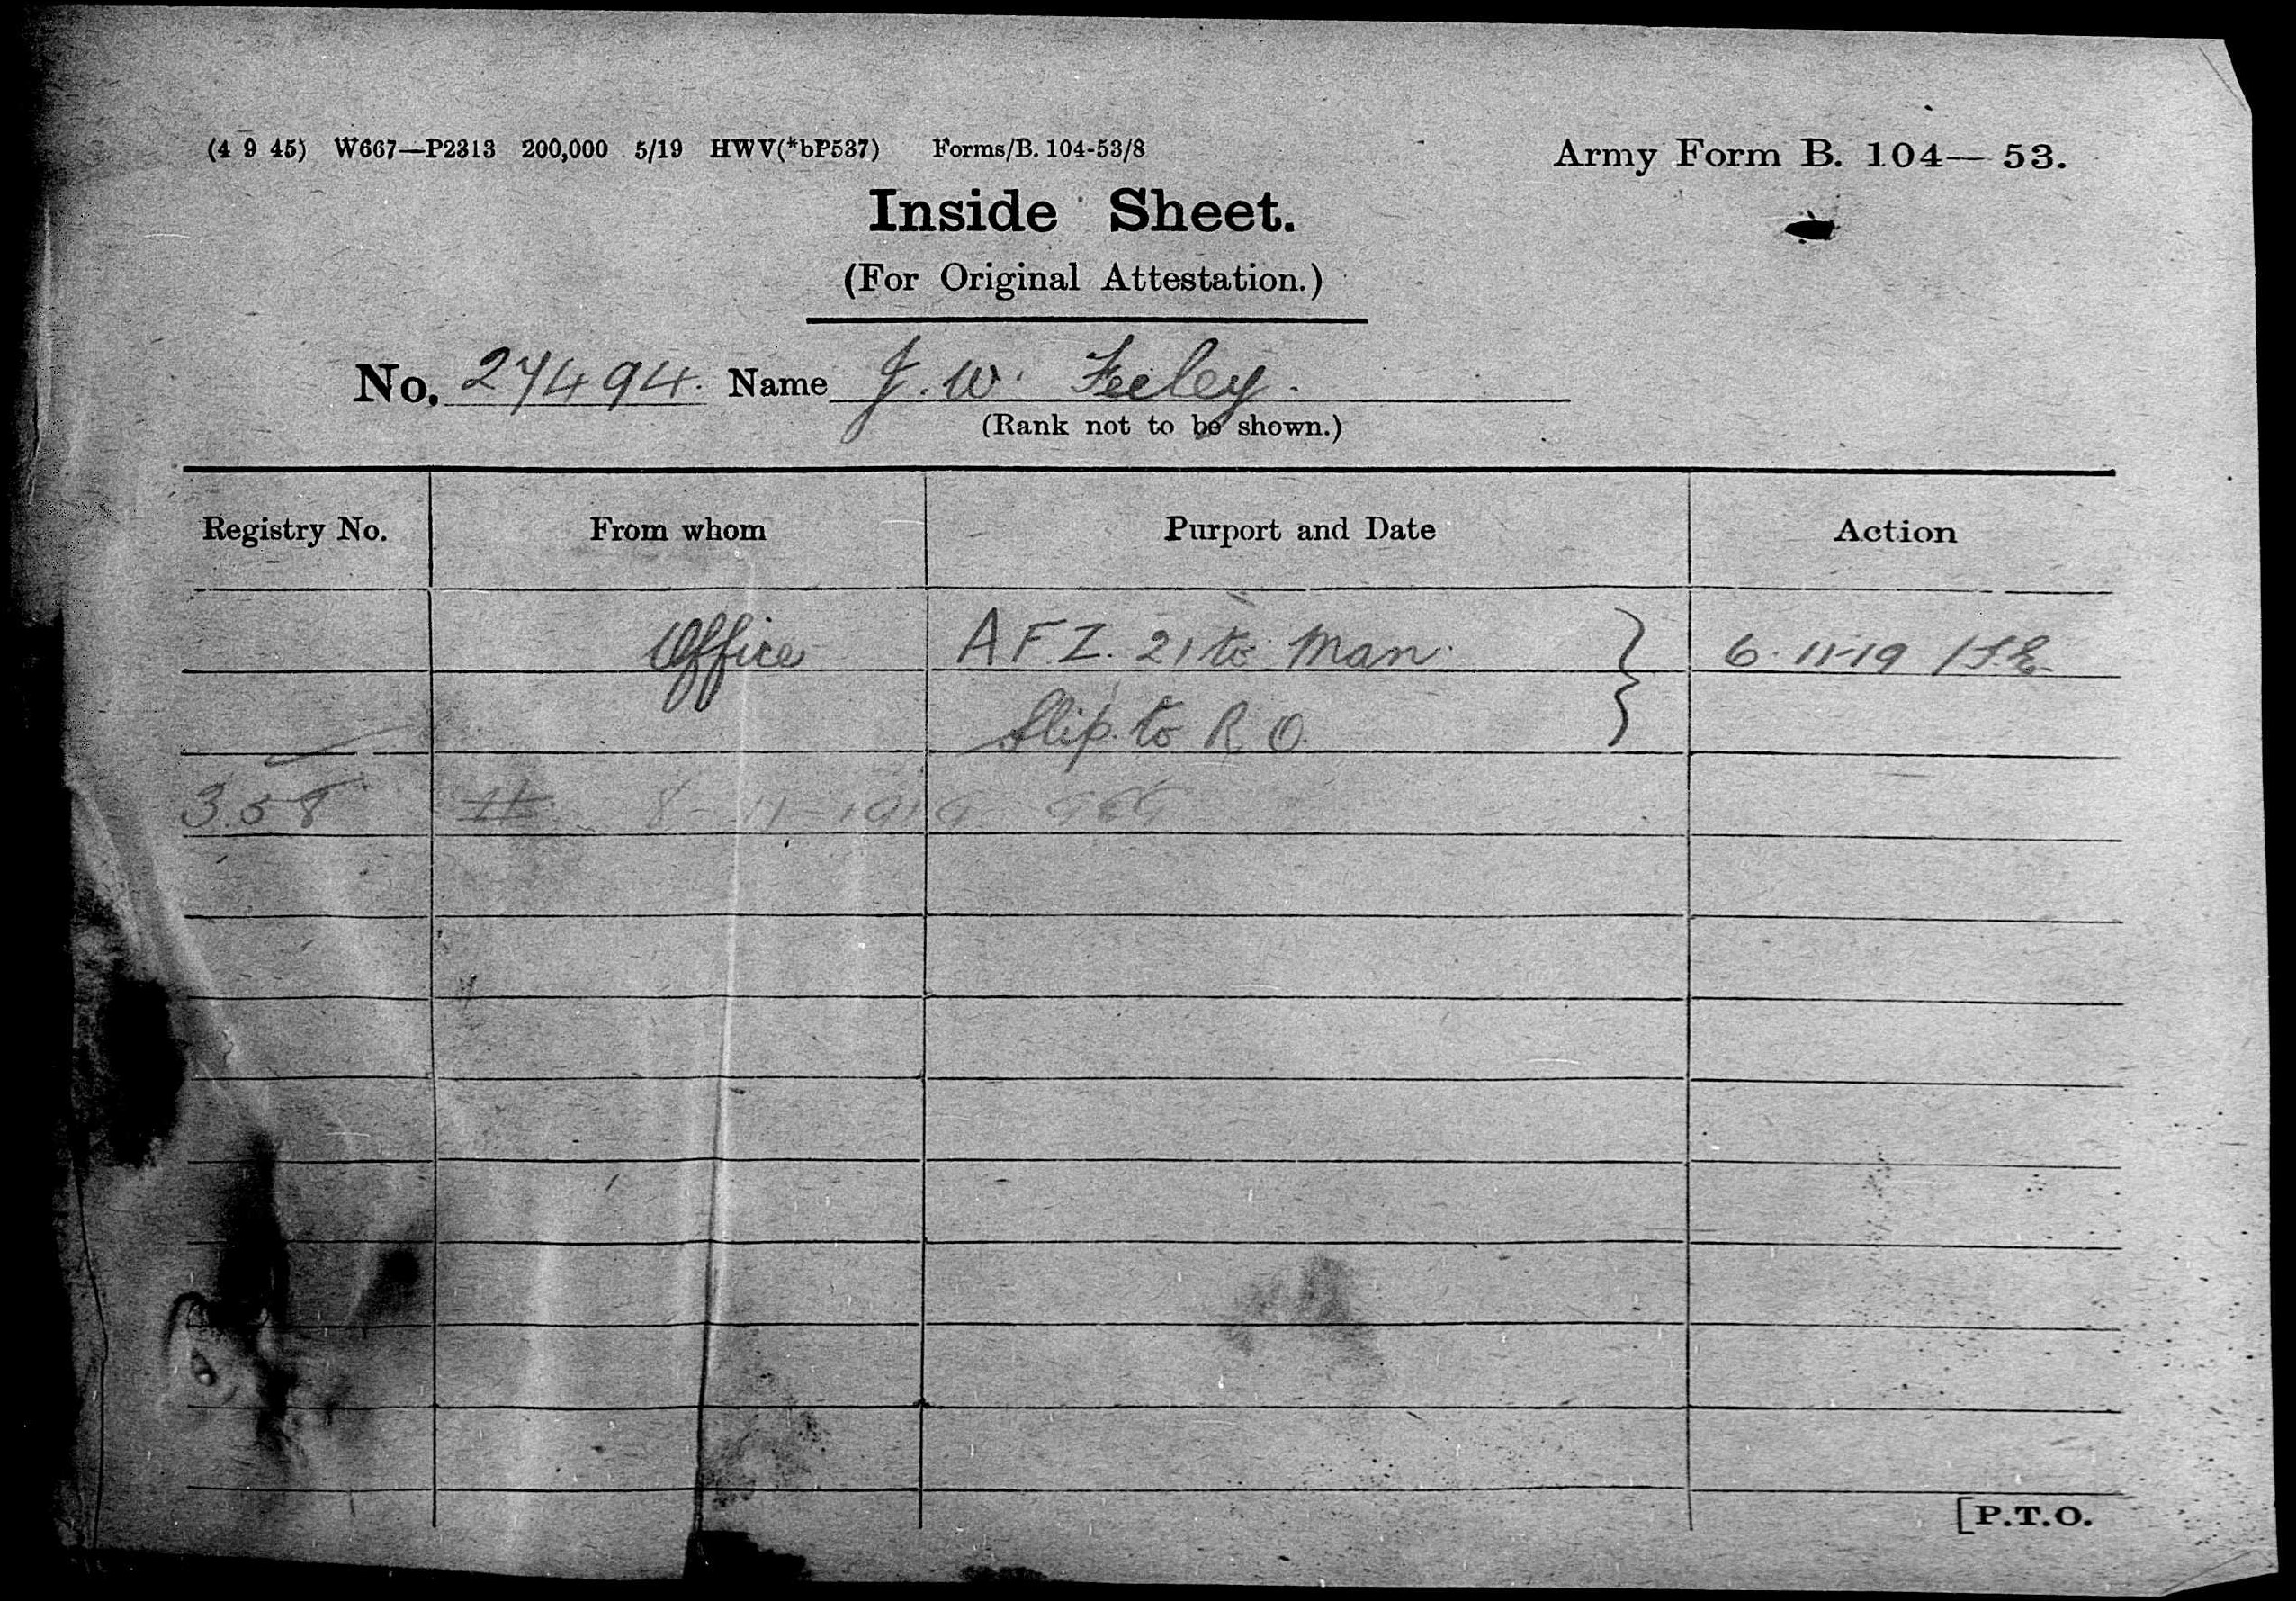 (4 9 45) W667—P2313 200,000 5/19 HWV(*bP537) Forms/B. 104-53/8
Army Form B. 104— 53.
Inside Sheet.
(For Original Attestation.)
No. 27494. Name J. W. Feeley.
(Rank not to be shown.)
Registry No. From whom Purport and Date Action
Office A F Z. 21 to Man } 6.11.19
Slip to R O
358 8-11-1919
[P.T.O.